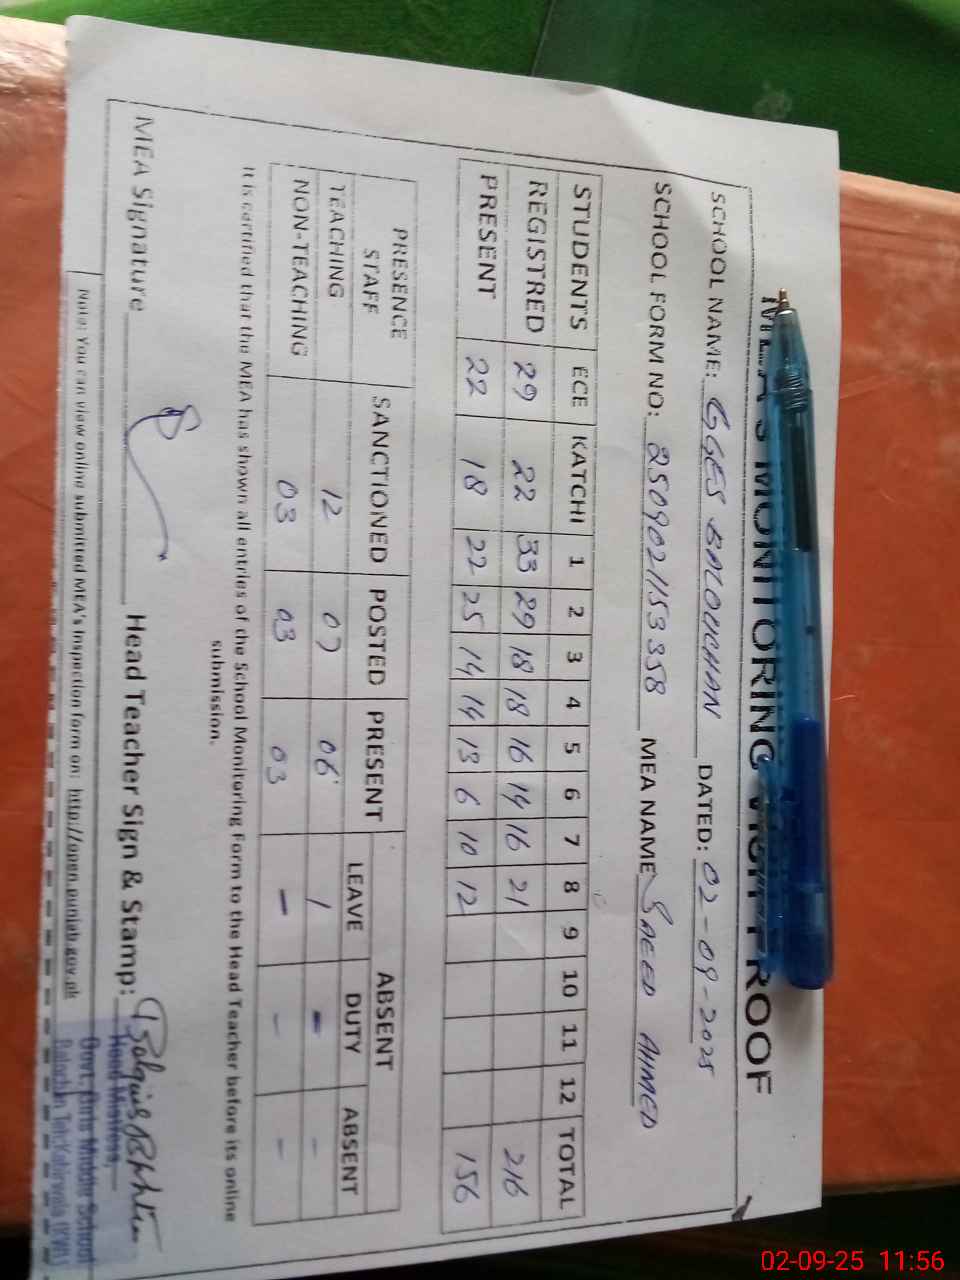 MEA'S MONITORING VISIT PROOF
SCHOOL NAME: GGES BALOUCHAN DATED: 02-09-2025
SCHOOL FORM NO: 2509021153358 MEA NAME SAEED AHMED
STUDENTS ECE KATCHI 1 2 3 4 5 6 7 8 9 10 11 12 TOTAL
REGISTRED 29 22 33 29 18 18 16 14 16 21 216
PRESENT 22 18 22 25 14 14 13 6 10 12 156
PRESENCE STAFF SANCTIONED POSTED PRESENT ABSENT
LEAVE DUTY ABSENT
TEACHING 12 07 06 1 - -
NON-TEACHING 03 03 03 - - -
It is certified that the MEA has shown all entries of the School Monitoring Form to the Head Teacher before its online
submission.
MEA Signature Head Teacher Sign & Stamp:
Head Mistress,
Govt. Girls Middle School
Note: You can view online submitted MEA's Inspection form on: http://open.punjab.gov.pk
02-09-25 11:56